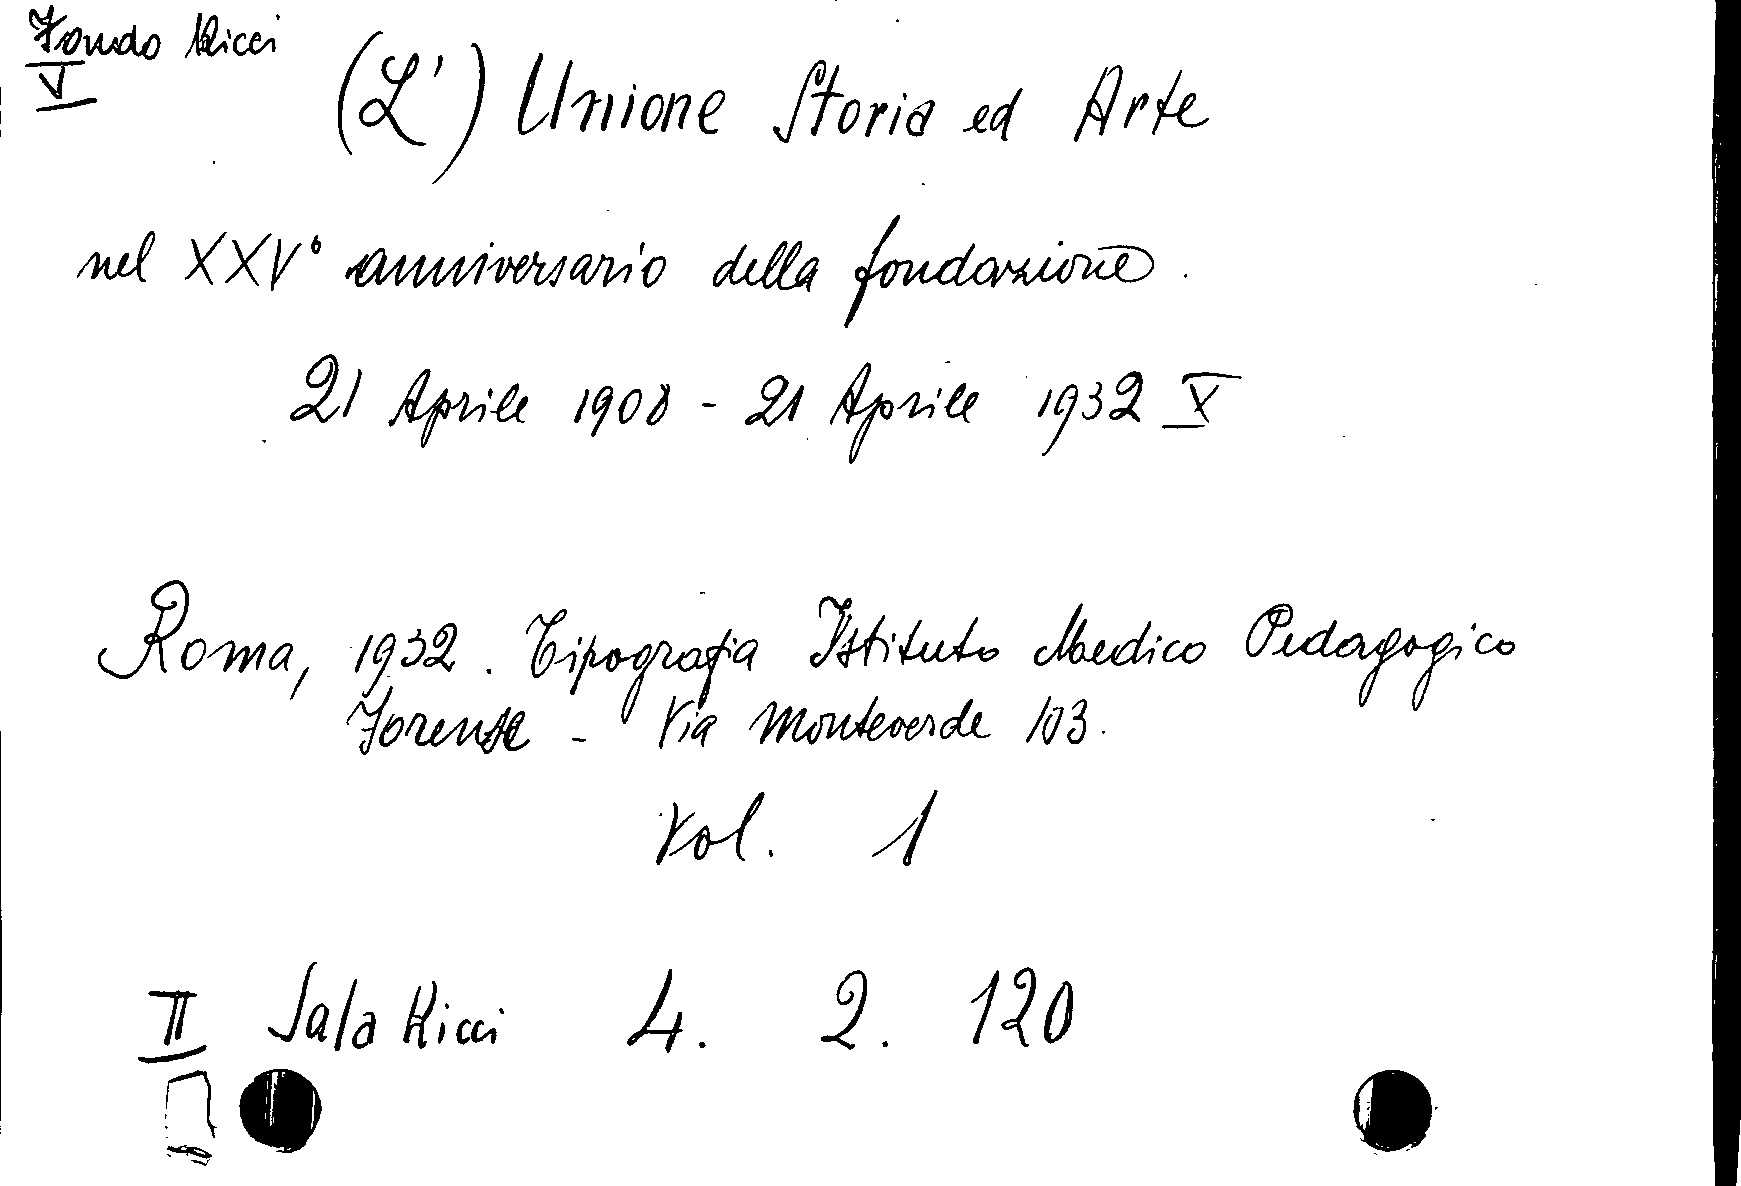 Fondo Ricci
V
(L') Unione Storia ed Arte
nel XXV° anniversario della fondazione.
21 Aprile 1908 - 21 Aprile 1932 X
Roma, 1932. Tipografia Istituto Medico Pedagogico
Forense - Via Monteverde 103.
Vol. 1
II Sala Ricci 4. 2. 120